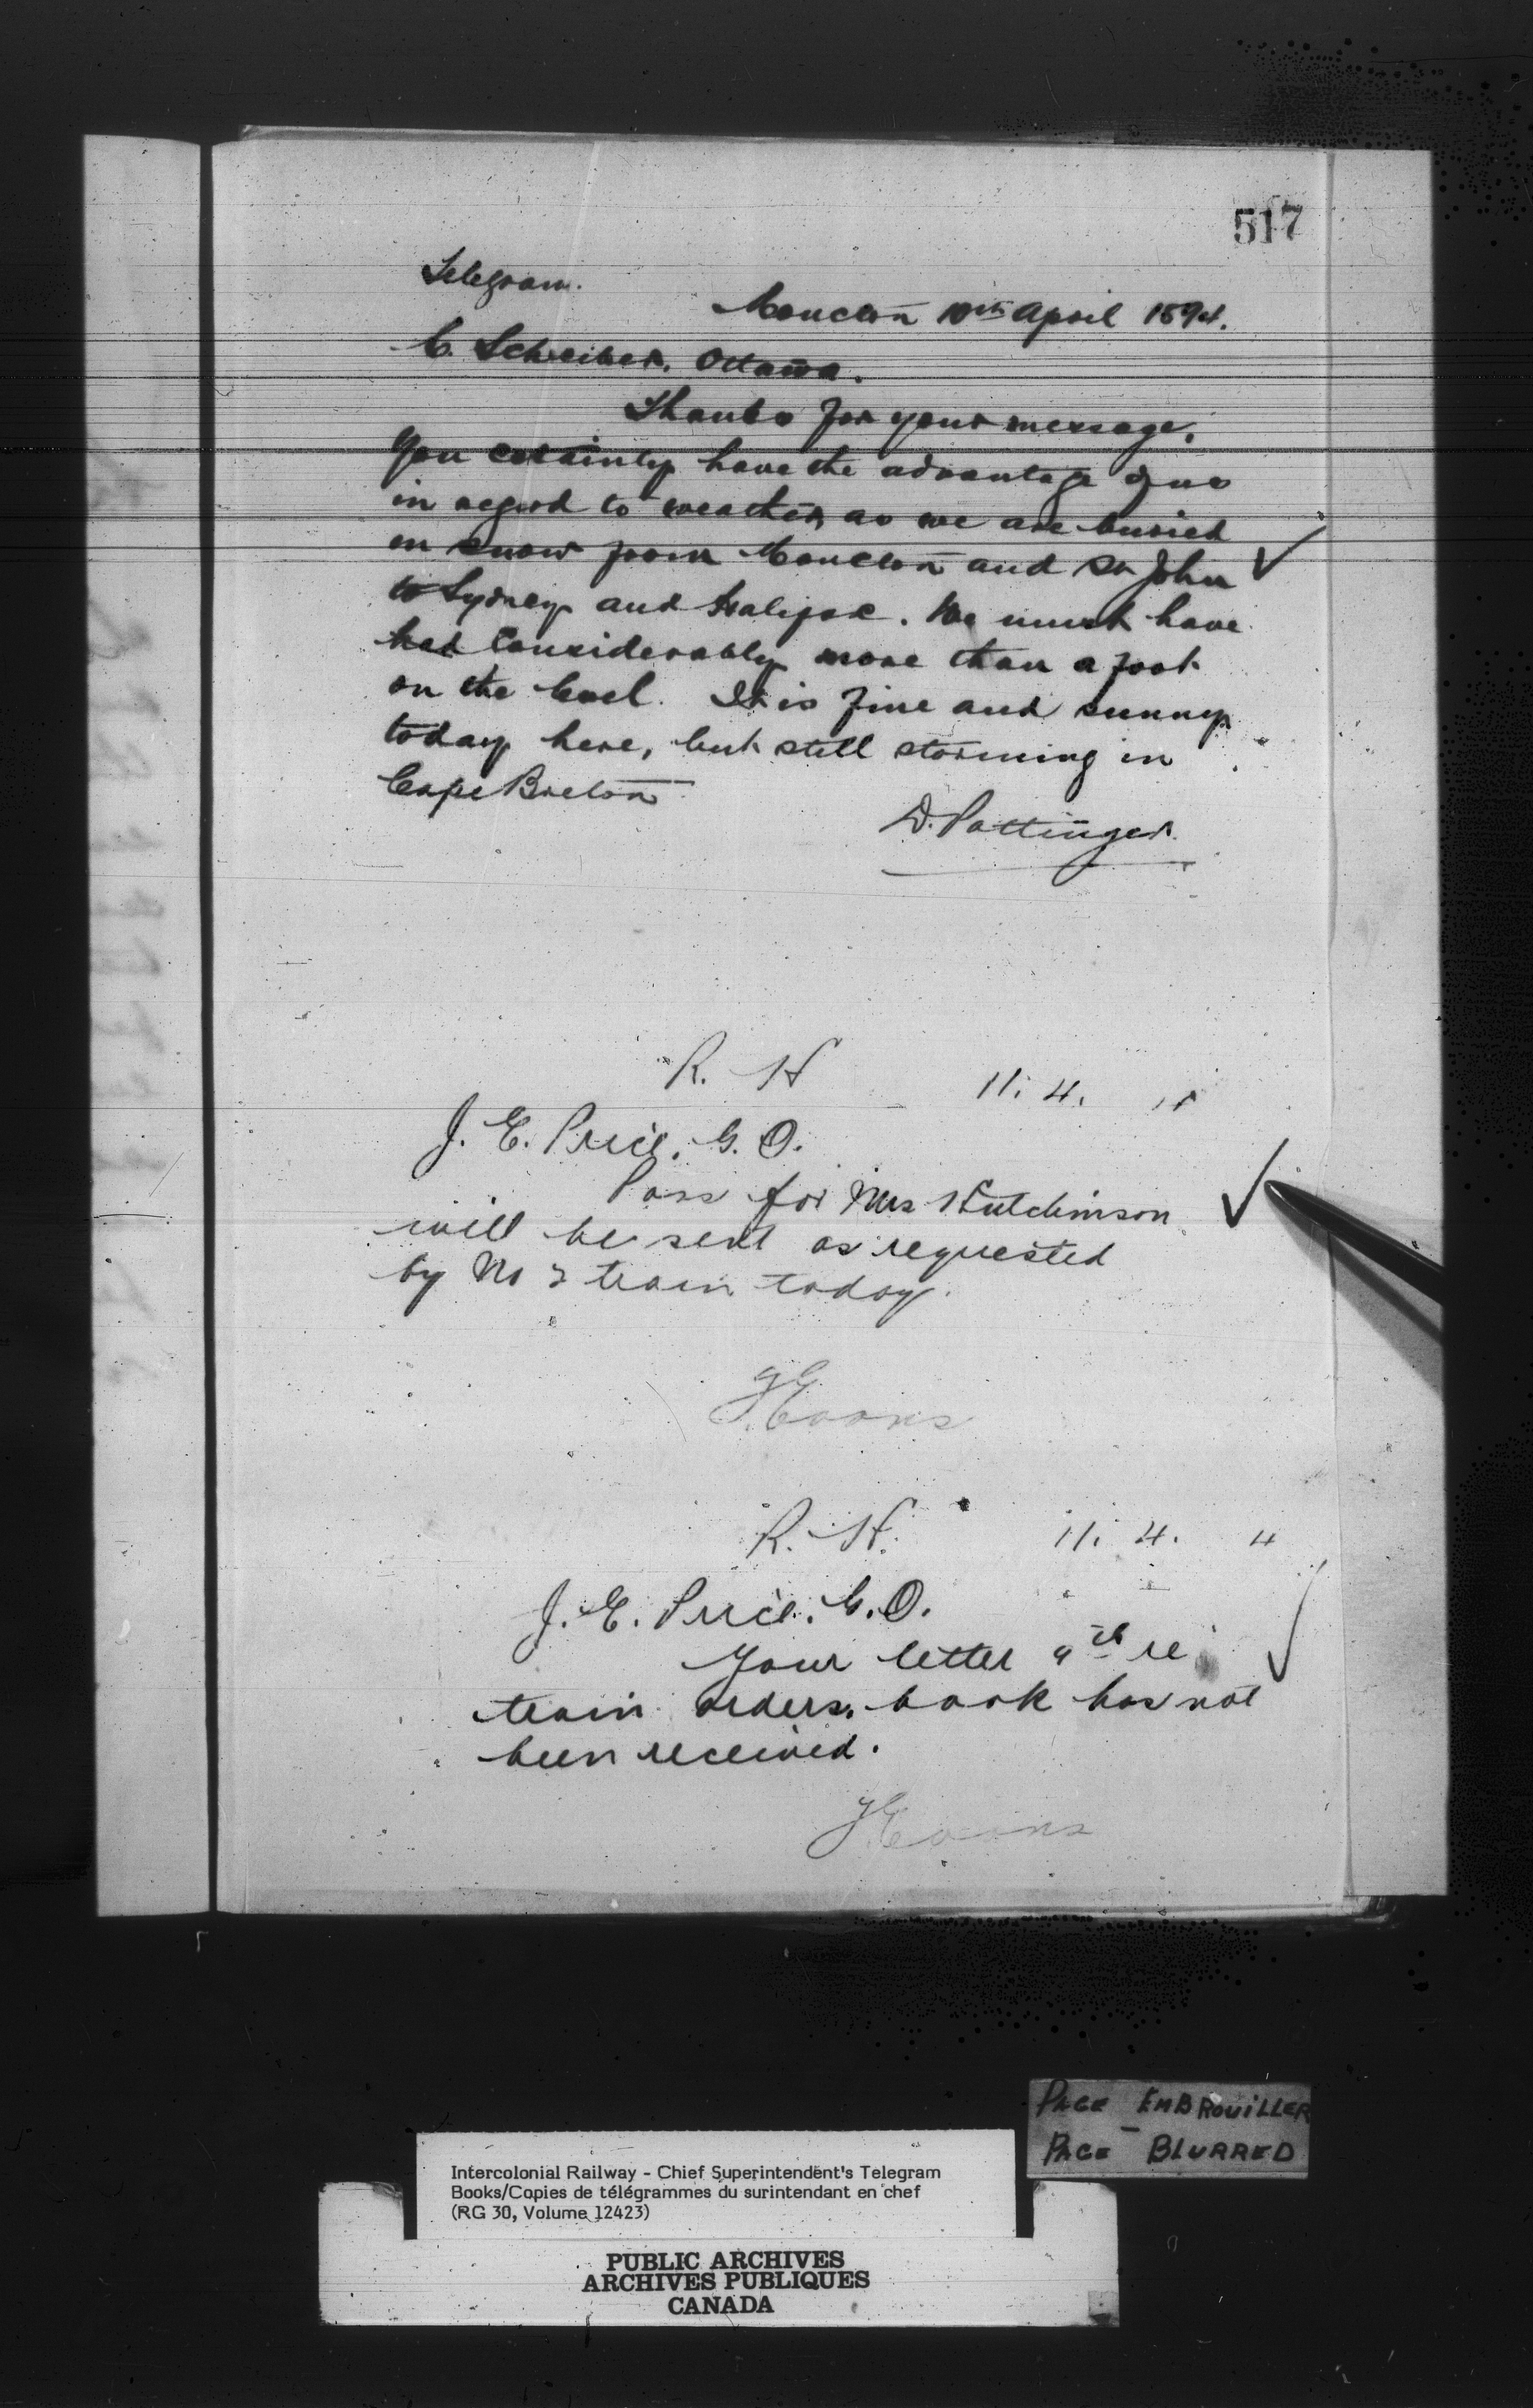 517
Telegram.
Moncton 10th April 1894.
C. Schreiber, Ottawa.
Thanks for your message.
You certainly have the advantage of us
in regard to weather as we are buried
in snow from Moncton and St John
to Sydney and Halifax. We must have
had considerably more than a foot
on the level. It is fine and sunny
today here, but still storming in
Cape Breton
D. Pottinger.
R. H 11. 4.
J. E. Price. G. O.
Pass for Mrs Hutchinson
will be sent as requested
by No 2 train today.
R. H. 11. 4. 4
J. E. Price. G. O.
Your letter 9th re
train orders. book has not
been received.
PAGE EMBROUILLER
PAGE BLURRED
Intercolonial Railway - Chief Superintendent's Telegram
Books/Copies de télégrammes du surintendant en chef
(RG 30, Volume 12423)
PUBLIC ARCHIVES
ARCHIVES PUBLIQUES
CANADA